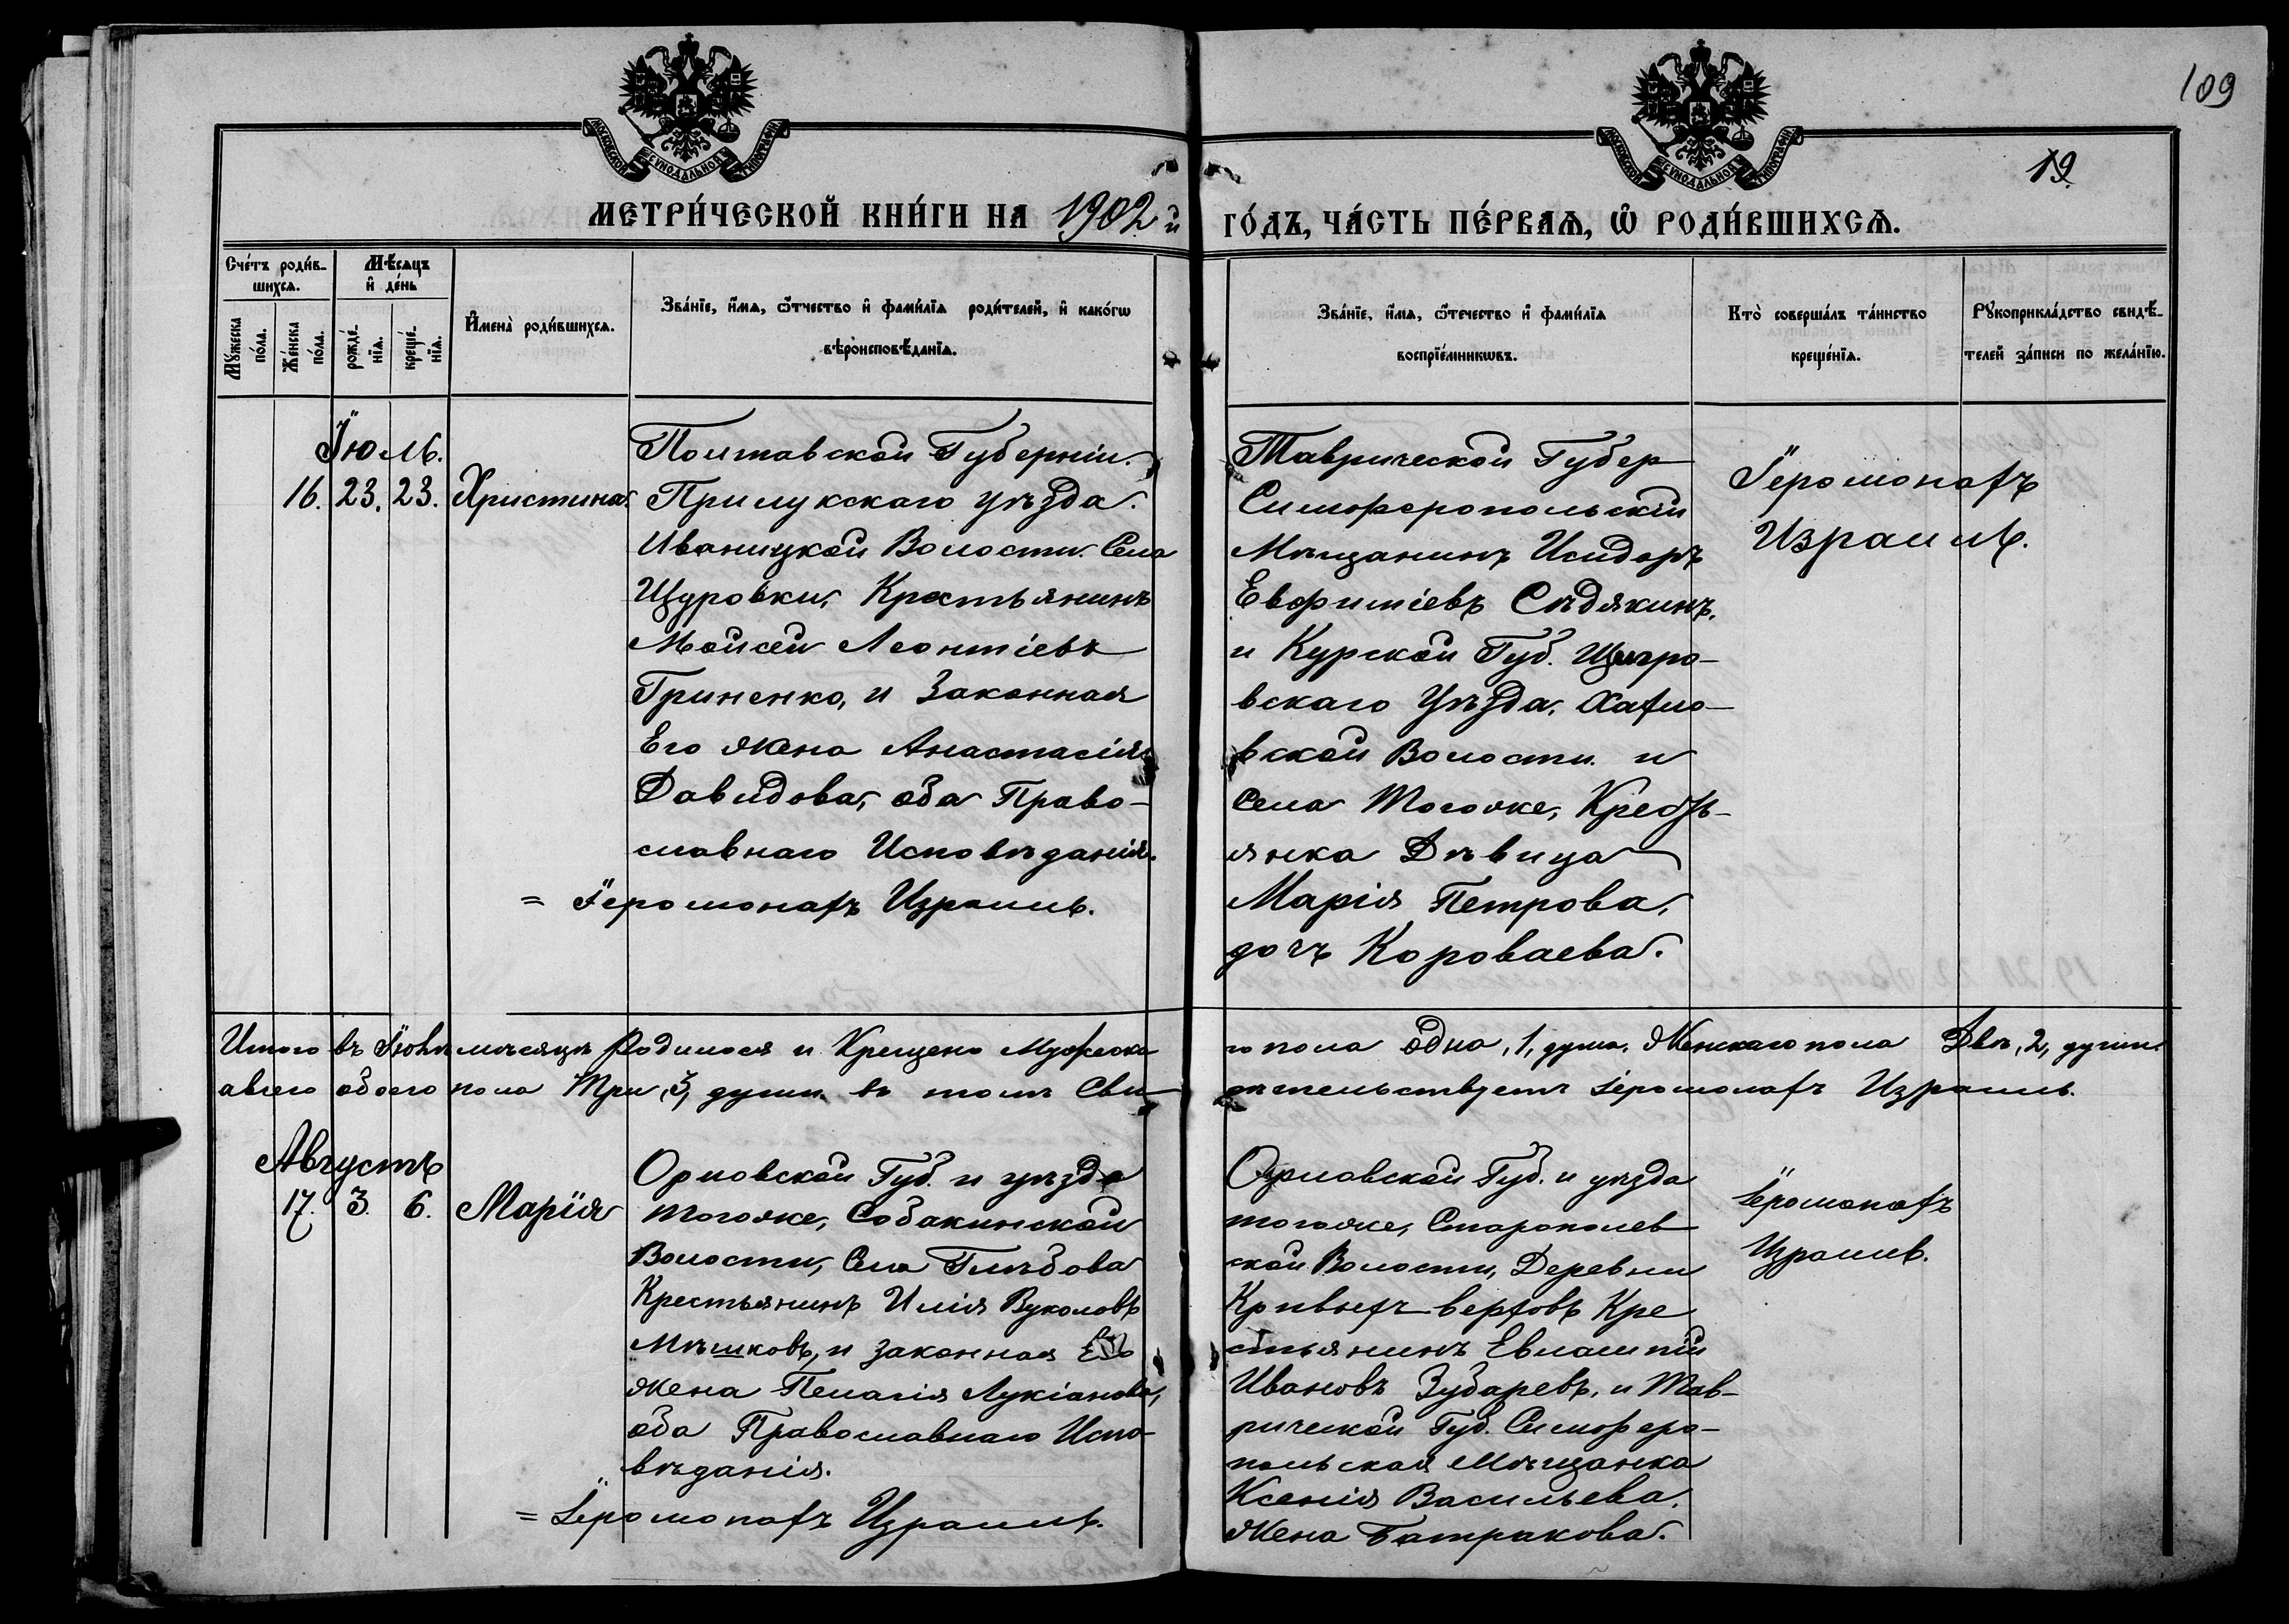 109
19.
МОСКОВСКОЙ СѴНОДАЛЬНОЙ ТИПОГРАФІИ
МОСКОВСКОЙ СѴНОДАЛЬНОЙ ТИПОГРАФІИ
МЕТРИ́ЧЕСКОЙ КНИ́ГИ НА 1902 й ГО́ДЪ, ЧА́СТЬ ПЕ́РВАѦ, Ѽ РОДИ́ВШИХСѦ.
Сче́тъ роди́в-
шихсѧ.
Мꙋ́жеска по́ла.
Же́нска по́ла.
Мѣ́сѧцъ и҆ де́нь
рожде́-нїѧ.
креще́-нїѧ.
И҆мена̀ роди́вшихсѧ.
Зва́нїе, и҆́мѧ, ѻ҆́тчество и҆ фами́лїѧ роди́телей, и҆ како́гѡ
вѣроисповѣ́данїѧ.
Зва́нїе, и҆́мѧ, ѻ҆те́чество и҆ фами́лїѧ
воспрїе́мникѡвъ.
Кто̀ соверша́лъ та́инство
креще́нїѧ.
Рꙋкоприкла́дство свидѣ́-
телей за́писи по жела́нїю.
Іюль.
16. 23. 23. Христина.
Полтавской Губерніи.
Прилукскаго уѣзда.
Иваницкой Волости. Села
Щуровки, Крестьянинъ
Моисей Леонтіевъ
Гриненко, и Законная
Его жена Анастасія
Давидова, оба Право-
славнаго Исповѣданія.
= Іеромонахъ Израиль.
Таврической Губер
Симферопольскій
Мѣщанинъ Исидоръ
Евфиміевъ Сѣдякинъ,
и Курской Губ. Щигро-
вскаго Уѣзда,
вской Волости и
Села Тогоже, Кресть-
янка Дѣвица
Марія Петрова,
дочь Короваева.
Іеромонахъ
Израиль.
Итого въ Іюлѣ мѣсяцѣ Родилося и Крещено Мужска го пола одна, 1, душа, Женскаго пола Двѣ, 2, души.
авсего обоего пола Три, 3, души. въ томъ Сви дѣтельствуетъ Іеромонахъ Израиль.
Августъ
17. 3. 6. Марія
Орловской Губ. и уѣзда
тогоже, Собакинской
Волости, Села Глѣбова
Крестьянинъ Илія Вуколовъ
Мѣшковъ, и законная Его
жена Пелагія Лукіанова,
оба Православнаго Испо-
вѣданія.
= Іеромонахъ Израиль.
Орловской Губ. и уѣзда
тогоже, Старополев
ской Волости, Деревни
Кривыхъ верховъ Кре
стьянинъ Евлампій
Ивановъ Зубаревъ, и Тав-
рической Губ. Симферо-
польская Мѣщанка
Ксенія Васильева,
жена Батракова.
Іеромонахъ
Израиль.